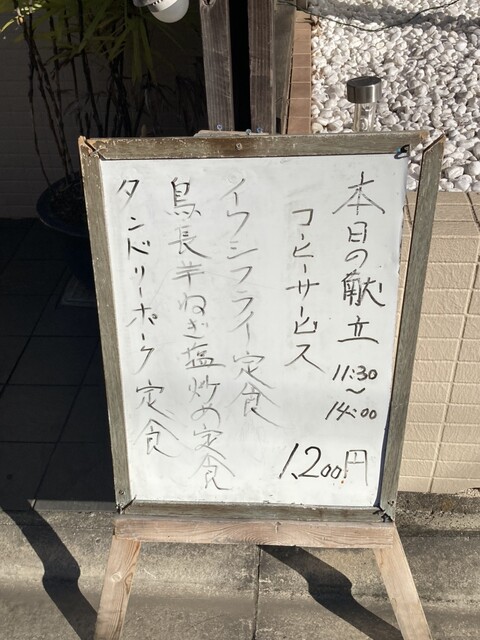 本日の献立
11:30
～
14:00
コーヒーサービス
1,200円
イワシフライ定食
鳥長芋ねぎ塩炒め定食
タンドリーポーク定食